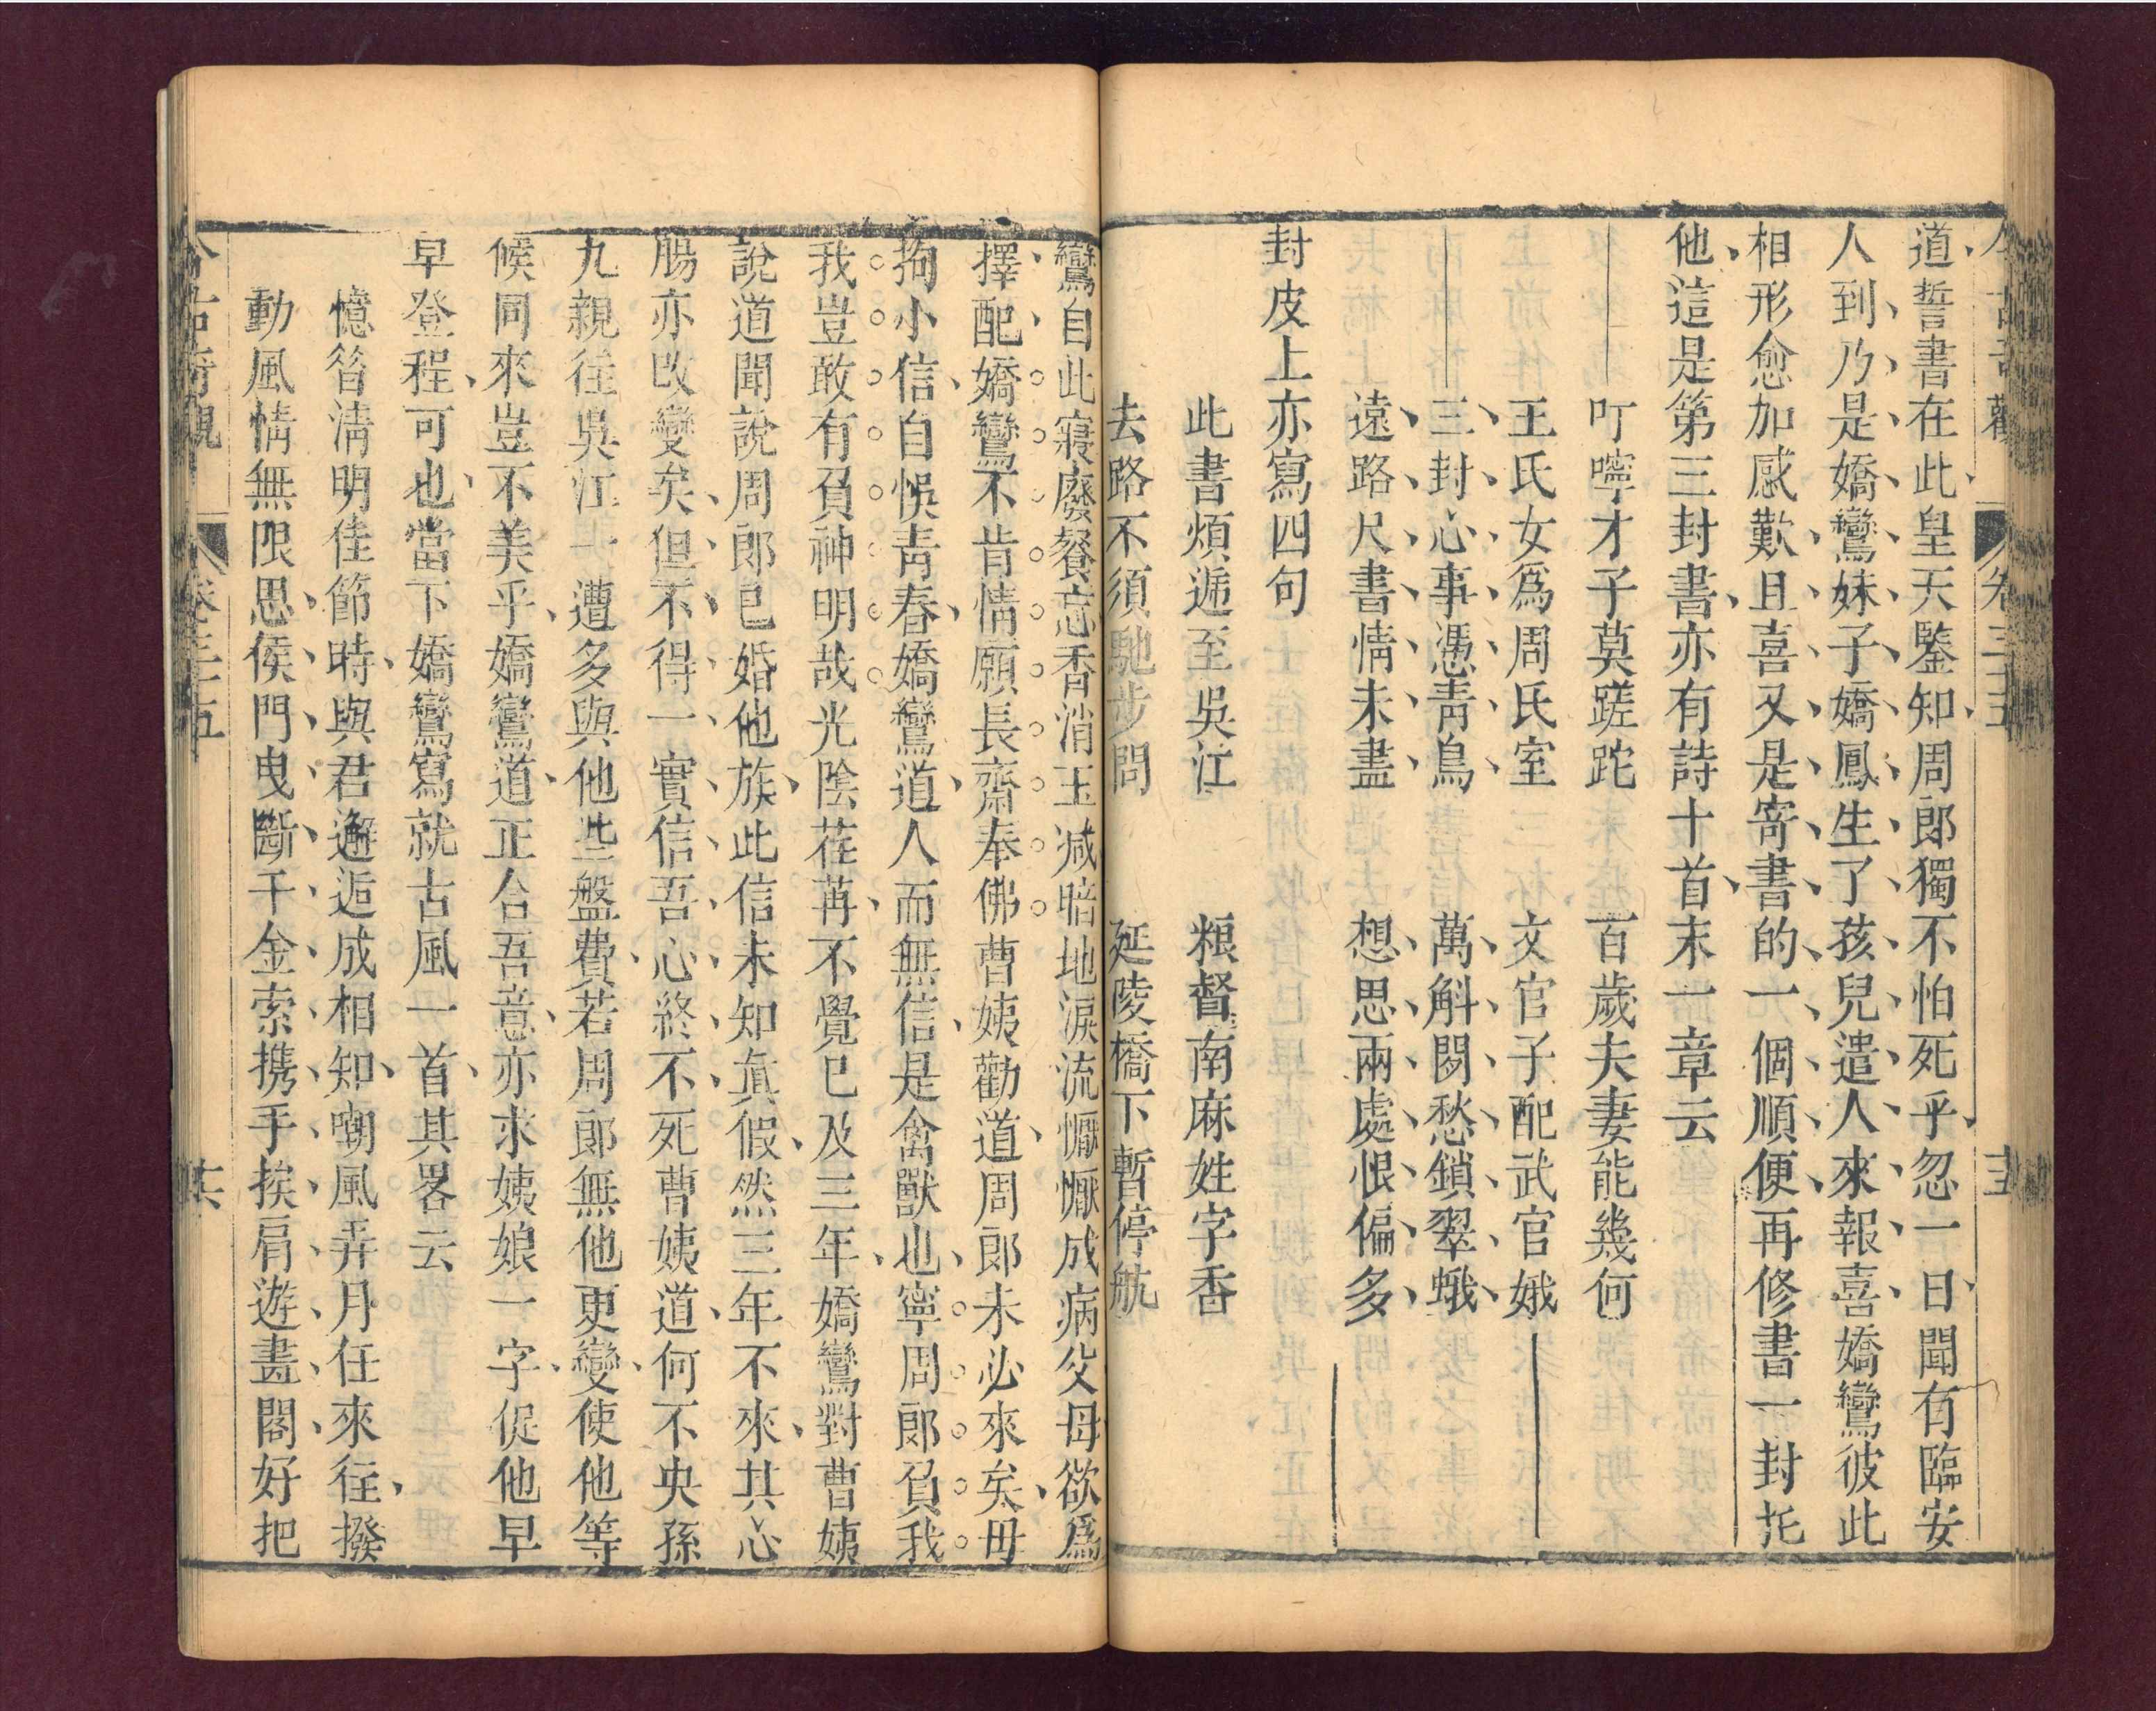 今古奇觀 卷三十五 十五
道誓書在此皇天鑒知周郎獨不怕死乎忽一日聞有臨安
人到乃是嬌鸞妹子嬌鳳生了孩兒遣人來報喜嬌鸞彼此
相形愈加感歎且喜又是寄書的一個順便再修書一封托
他這是第三封書亦有詩十首末一章云
叮嚀才子莫蹉跎 百歲夫妻能幾何
王氏女爲周氏室 文官子配武官娥
三封心事憑靑鳥 萬斛閒愁鎖翠蛾
遠路尺書情未盡 想思兩處恨偏多
封皮上亦寫四句
此書煩遞至吳江 粮督南麻姓字香
去路不須馳步問 延陵橋下暫停航
鸞自此寢廢餐忘香消玉减暗地淚流懨懨成病父母欲爲
擇配嬌鸞不肯情願長齋奉佛曹姨勸道周郎未必來矣毋
拘小信自悞靑春嬌鸞道人而無信是禽獸也寧周郎負我
我豈敢有負神明哉光陰荏苒不覺已及三年嬌鸞對曹姨
說道聞說周郎已婚他族此信未知眞假然三年不來其心
腸亦改變矣但不得一實信吾心終不死曹姨道何不央孫
九親往吳江一遭多與他些盤費若周郎無他更變使他等
候同來豈不美乎嬌鸞道正合吾意亦求姨娘一字促他早
早登程可也當下嬌鸞寫就古風一首其畧云
憶昝淸明佳節時與君邂逅成相知嘲風弄月任來往撥
動風情無限思侯門曳斷千金索携手挨肩遊畫閣好把
今古奇觀 卷三十五 十六